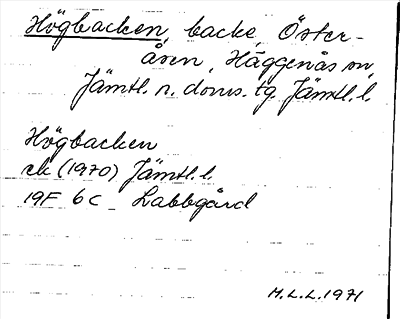 Högbacken, backe, Öster-
åsen, Häggenås sn,
Jämtl. n. doms. tg Jämtl. l.
Högbacken
ek (1970) Jämtl. l.
19F 6c - Labbgård
M.L.L. 1971